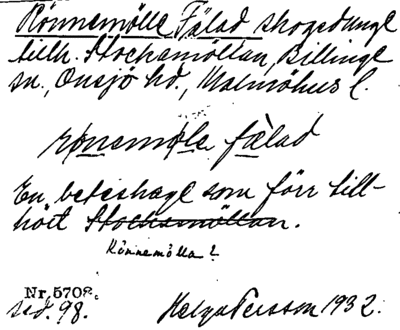 Rönnemölle Fälad skogsdunge
tillh. Stockamöllan, Billinge
sn., Onsjö hd., Malmöhus l.
rönemøle fælad
En beteshage som förr till-
hört Stockamöllan.
Rönnemölla?
Nr. 5708.
sid. 98. Helga Persson 1932.